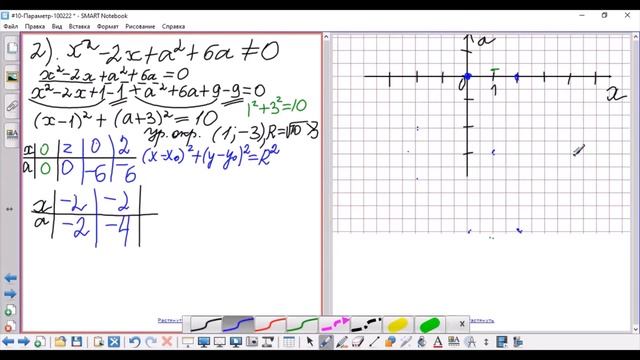 #10-Параметр-100222 * - SMART Notebook
Файл Правка Вид Вставка Формат Инструменты Дополнения Справка
2). x² - 2x + a² + 6a ≠ 0
x² - 2x + a² + 6a = 0
x² - 2x + 1 - 1 + a² + 6a + 9 - 9 = 0
1² + 3² = 10
(x - 1)² + (a + 3)² = 10
ур. окр. (1; -3), R = √10 > 3
x 0 2 0 2
a 0 0 -6 -6
(x - x₀)² + (y - y₀)² = R²
x -2 -2
a -2 -4
a
0 1 x